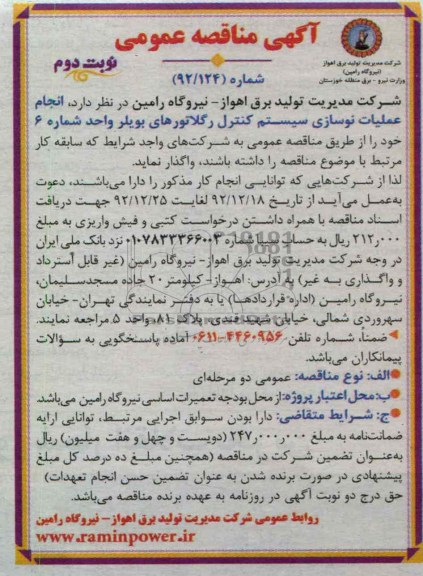 آگهی مناقصه عمومی
شماره (۹۲/۱۲۴)
نوبت دوم
شرکت مدیریت تولید برق اهواز
(نیروگاه رامین)
وزارت نیرو - برق منطقه خوزستان
شرکت مدیریت تولید برق اهواز- نیروگاه رامین در نظر دارد، انجام
عملیات نوسازی سیستم کنترل رگلاتورهای بویلر واحد شماره ۶
خود را از طریق مناقصه عمومی به شرکت‌های واجد شرایط که سابقه کار
مرتبط با موضوع مناقصه را داشته باشند، واگذار نماید.
لذا از شرکت‌هایی که توانایی انجام کار مذکور را دارا می‌باشند، دعوت
به‌عمل می‌آید از تاریخ ۹۲/۱۲/۱۸ لغایت ۹۲/۱۲/۲۵ جهت دریافت
اسناد مناقصه با همراه داشتن درخواست کتبی و فیش واریزی به مبلغ
۲۱۲٫۰۰۰ ریال به حساب سیبا شماره ۰۱۰۷۸۳۳۳۶۶۰۰۴ نزد بانک ملی ایران
در وجه شرکت مدیریت تولید برق اهواز- نیروگاه رامین (غیر قابل استرداد
و واگذاری به غیر) به آدرس: اهواز- کیلومتر ۲۰ جاده مسجدسلیمان،
نیروگاه رامین (اداره قراردادها) یا به دفتر نمایندگی تهران- خیابان
سهروردی شمالی، خیابان شهید قندی، پلاک ۸۱، واحد ۵ مراجعه نمایند.
ضمناً، شماره تلفن ۴۴۶۰۹۵۶-۰۶۱۱ آماده پاسخگویی به سؤالات
پیمانکاران می‌باشد.
الف: نوع مناقصه: عمومی دو مرحله‌ای
ب: محل اعتبار پروژه: از محل بودجه تعمیرات اساسی نیروگاه رامین می‌باشد.
ج: شرایط متقاضی: دارا بودن سوابق اجرایی مرتبط، توانایی ارایه
ضمانت‌نامه به مبلغ ۲۴۷٫۰۰۰٫۰۰۰ (دویست و چهل و هفت میلیون) ریال
به‌عنوان تضمین شرکت در مناقصه (همچنین مبلغ ده درصد کل مبلغ
پیشنهادی در صورت برنده شدن به عنوان تضمین حسن انجام تعهدات)
حق درج دو نوبت آگهی در روزنامه به عهده برنده مناقصه می‌باشد.
روابط عمومی شرکت مدیریت تولید برق اهواز- نیروگاه رامین
www.raminpower.ir